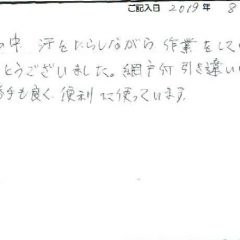 ご記入日 2019年 8
の中 汗をたらしながら 作業をして
とうございました。網戸付 引き違い
手も良く 便利に使っています